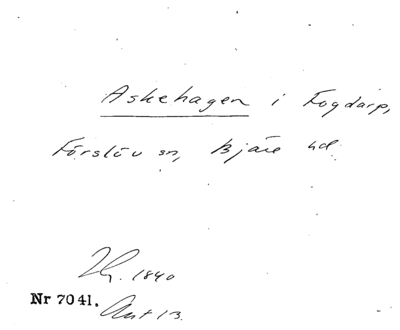 Askehagen i Fogdarp,
Förslöv sn, Bjäre hd
Hy. 1840
Nr 7041. Ant 13.